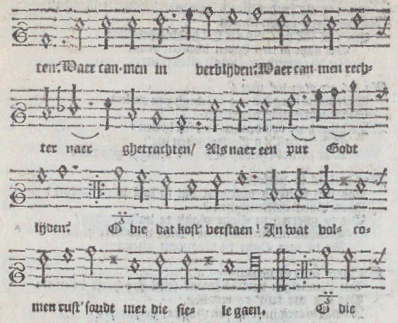 ten? Waer can-men in verblyden? Waer can-men rech-
ter naer ghetrachten/ Als naer een pur Godt
lijden? O die dat kost' verstaen! In wat vol- co-
men rust' soude met die sie- le gaen. O die